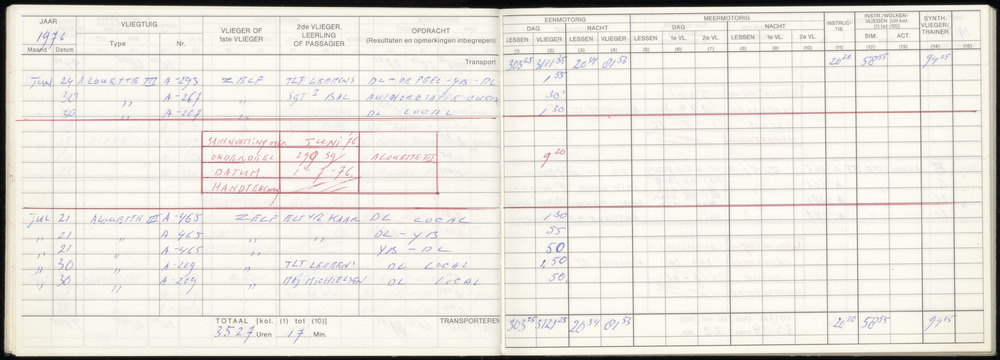 JAAR VLIEGTUIG VLIEGER OF 1ste VLIEGER 2de VLIEGER, LEERLING OF PASSAGIER OPDRACHT (Resultaten en opmerkingen inbegrepen) EENMOTORIG MEERMOTORIG INSTRUCTIE INSTR./WOLKENVLIEGEN (uit kol. (1) tot (10)) SYNTH. VLIEGER/TRAINER
1976 DAG NACHT DAG NACHT
Maand Datum Type Nr. LESSEN VLIEGER LESSEN VLIEGER LESSEN 1e VL. 2e VL. LESSEN 1e VL. 2e VL. SIM. ACT.
(1) (2) (3) (4) (5) (6) (7) (8) (9) (10) (11) (12) (13) (14) (15)
Transport 303 25 3111 55 20 34 91 53 20 20 56 55 94 05
Jun 24 ALOUETTE III A-293 ZELF TLT LEERENS DL-DE PEEL-YB-DL 1 55
30 " A-267 " SGT I BAL 30
30 " A-267 " DL LOCAL 1 30
SAMENVATTING OVER JUNI 76
ONDERDEEL 299 SQ ALOUETTE III 9 20
DATUM 1-7-76
HANDTEKENING
Jul 21 ALOUETTE III A-465 ZELF DL LOCAL 1 50
" 21 " A 465 " " DL-YB 55
" 21 " A-465 " " YB-DL 50
" 30 " A-209 TLT LEERENS DL LOCAL 1 50
" 30 " A-209 " MAJ MICHIELSEN DL LOCAL 50
TOTAAL [kol. (1) tot (10)] TRANSPORTEREN 303 25 3121 25 20 34 91 53 20 20 56 55 94 05
3527 Uren 17 Min.